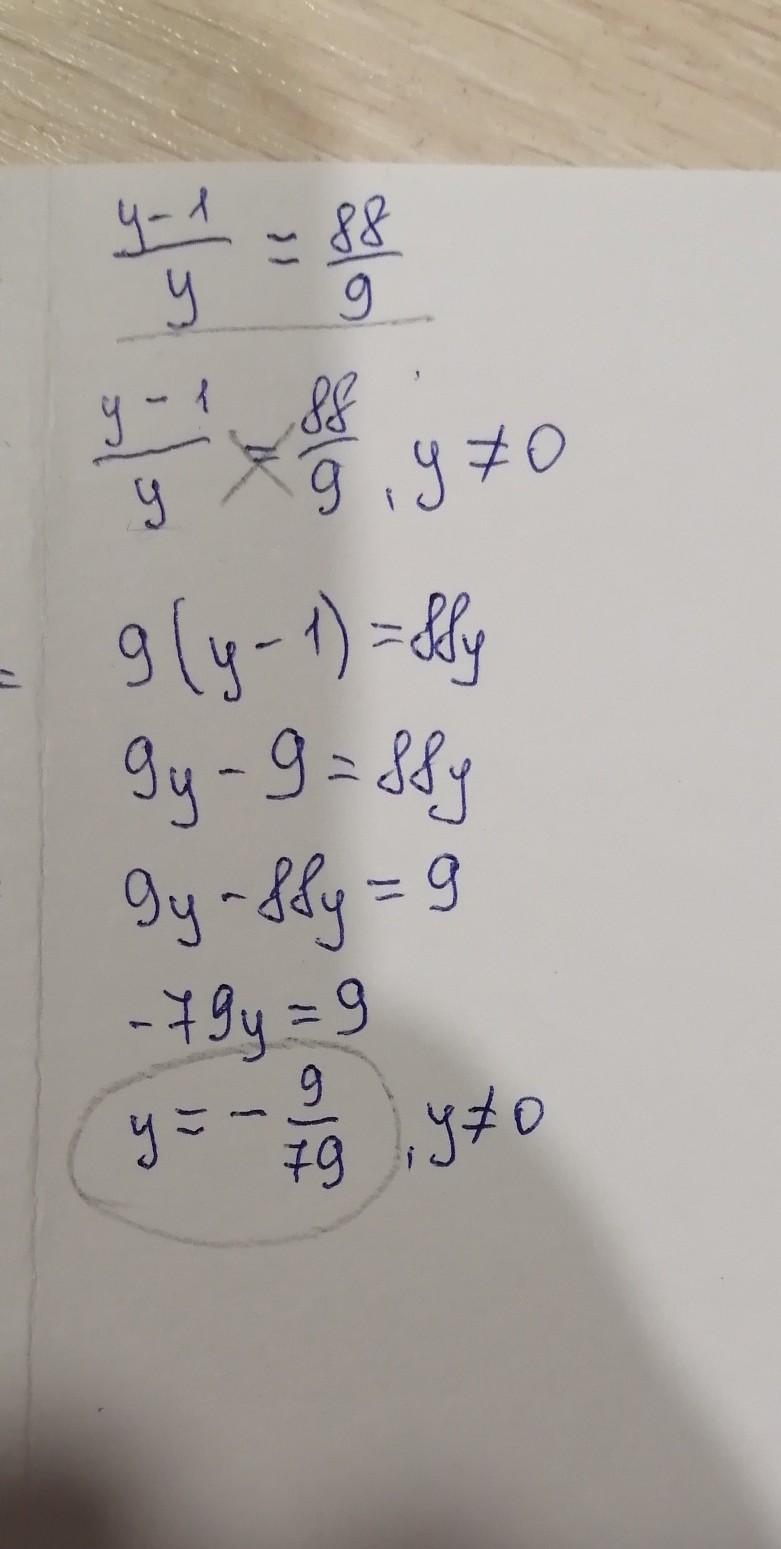 y-1/y = 88/9
y-1/y = 88/9, y ≠ 0
9(y-1)=88y
9y-9=88y
9y-88y=9
-79y=9
y=-9/79, y≠0
=